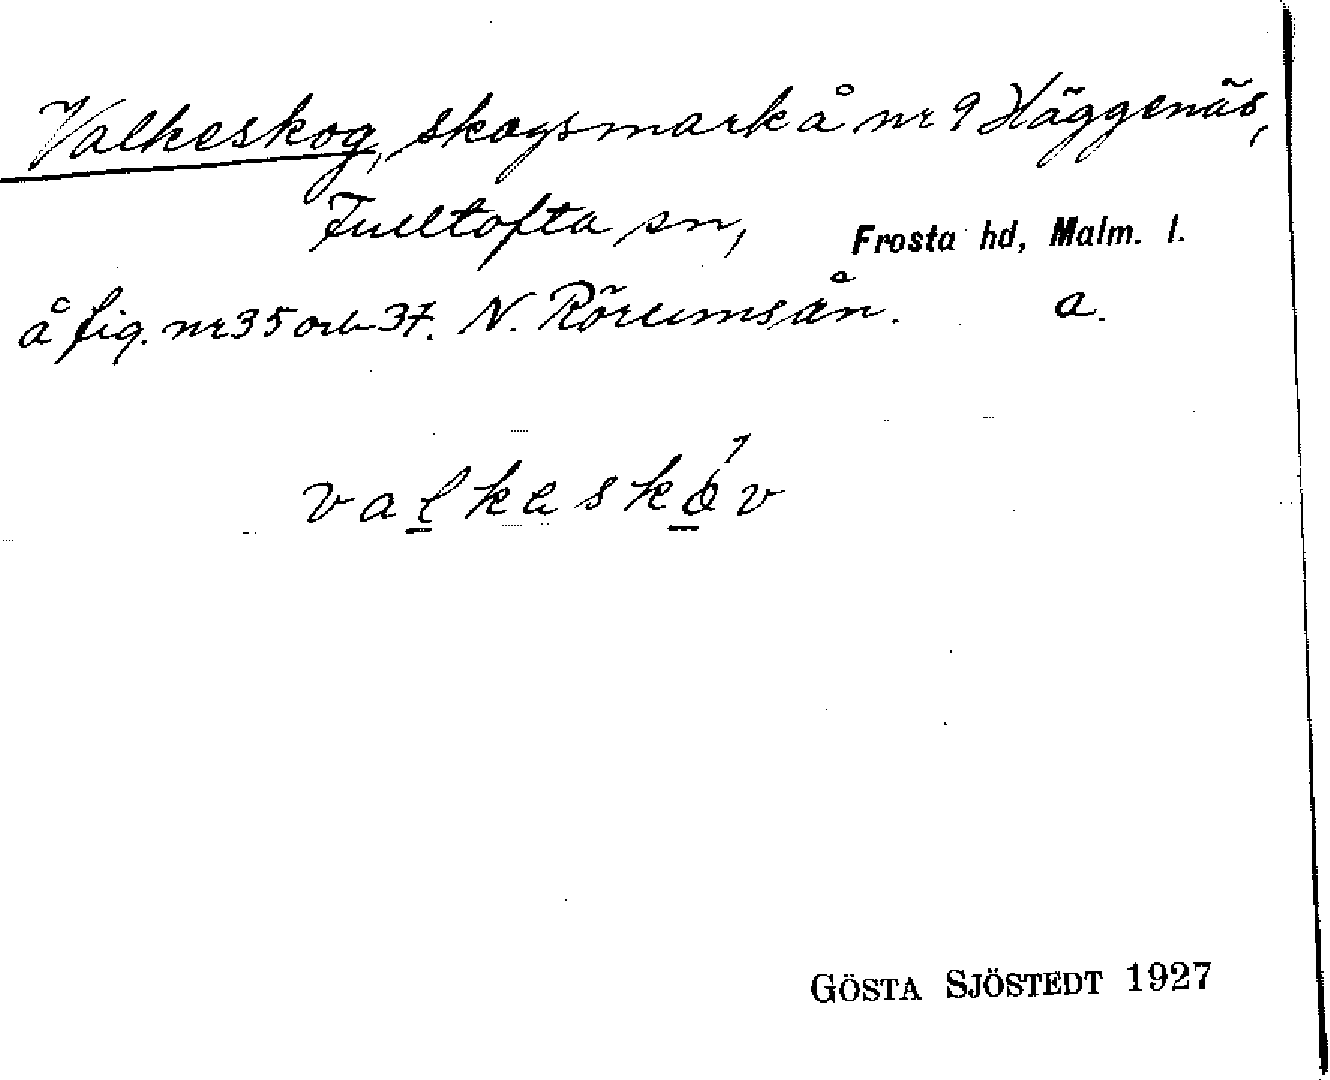 Valkeskog, skogsmark å nr 9 Häggenäs,
Fulltofta sn, Frosta hd, Malm. l.
å fig. nr 35 och 37. N. Rörumsån. a.
valkeskóv
GÖSTA SJÖSTEDT 1927